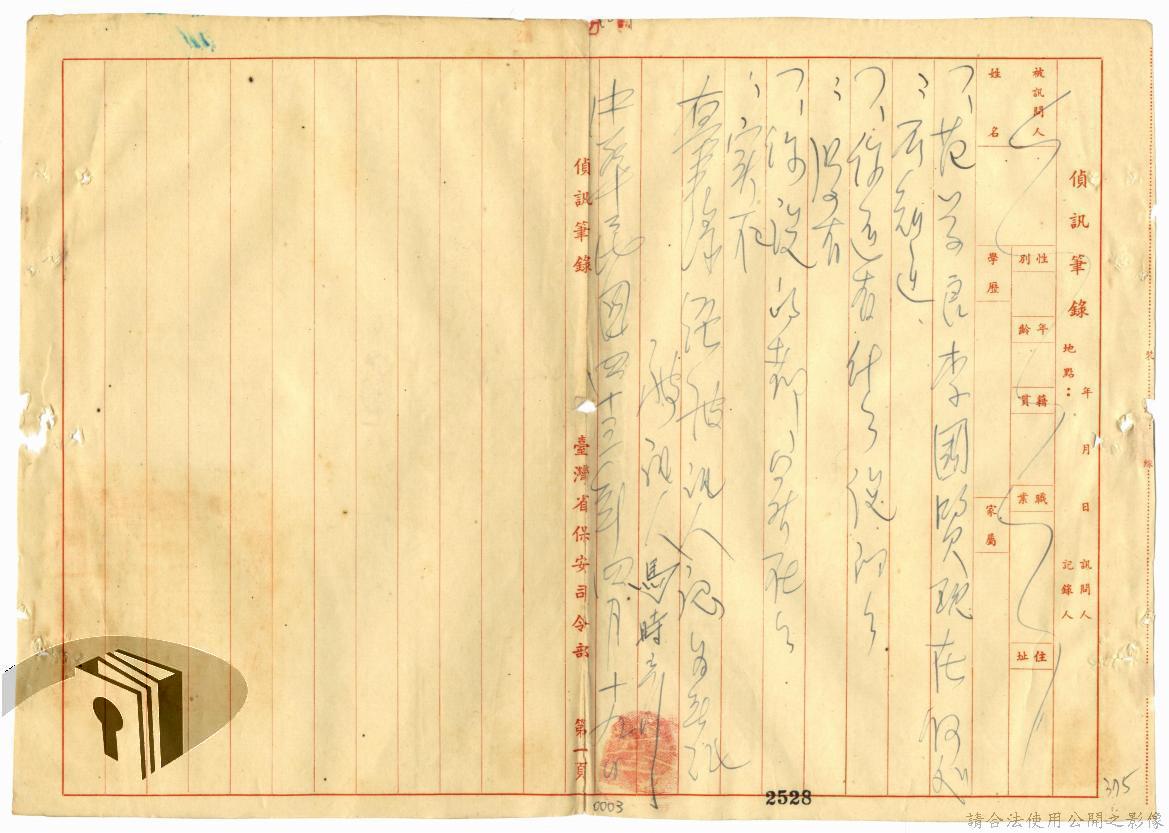 偵訊筆錄
地點：
年 月 日
訊問人
記錄人
被訊問人
姓名
性別
年齡
籍貫
職業
住址
學歷
家屬
問、范学良李國賢現在何処
答、不知道、
問、你還有什么後的么
答、没有
問、你説的都
答、实在
右筆录經被訊人認為無訛
被訊人馬時彥
中華民国四十三年四月十九日
偵訊筆錄
臺灣省保安司令部
第一頁
2528
0003
375
請合法使用公開之影像